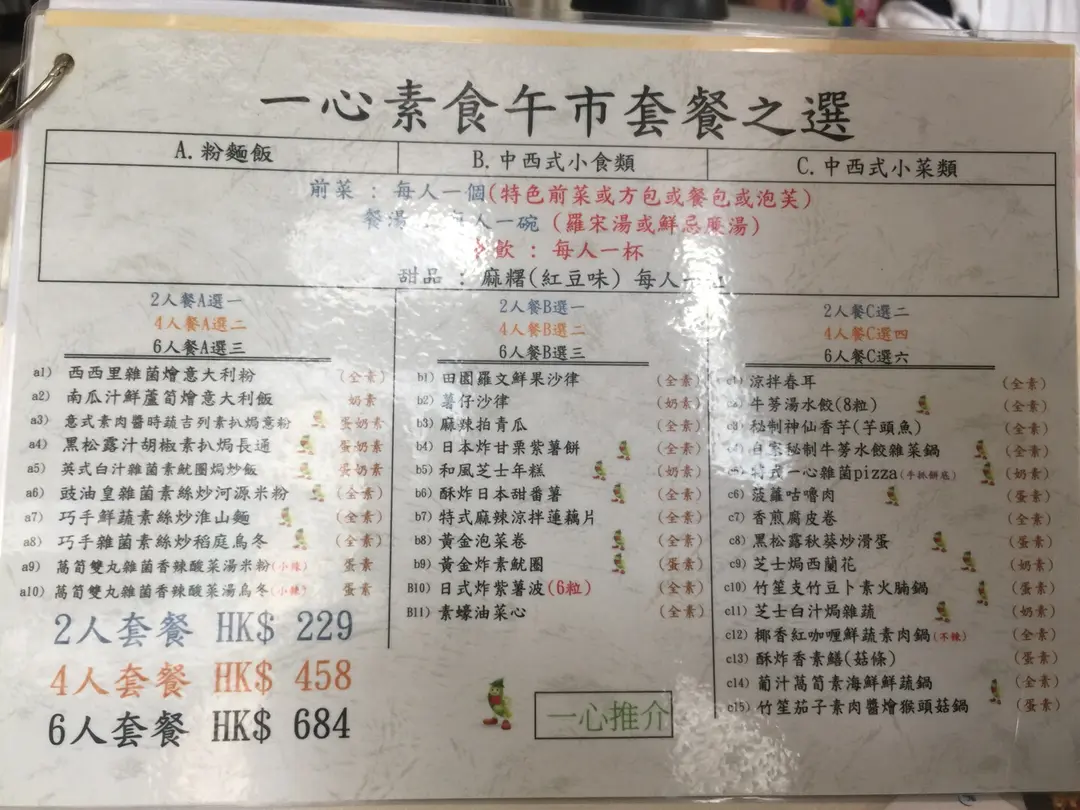 一心素食午市套餐之選
A.粉麵飯
B.中西式小食類
C.中西式小菜類
前菜 : 每人一個(特色前菜或方包或餐包或泡芙)
餐湯 人一碗 (羅宋湯或鮮忌廉湯)
飲 : 每人一杯
甜品 : 麻糬(紅豆味) 每人
2人餐A選一
4人餐A選二
6人餐A選三
a1) 西西里雜菌燴意大利粉 (全素)
a2) 南瓜汁鮮蘆筍燴意大利飯 奶素
a3) 意式素肉醬時蔬吉列素扒焗意粉 蛋奶素
a4) 黑松露汁胡椒素扒焗長通 蛋奶素
a5) 英式白汁雜菌素魷圈焗炒飯 蛋奶素
a6) 豉油皇雜菌素絲炒河源米粉 (全素)
a7) 巧手鮮蔬素絲炒淮山麵 (全素)
a8) 巧手雜菌素絲炒稻庭烏冬 (全素)
a9) 萵筍雙丸雜菌香辣酸菜湯米粉(小辣) 蛋素
a10) 萵筍雙丸雜菌香辣酸菜湯烏冬(小辣) 蛋素
2人套餐 HK$ 229
4人套餐 HK$ 458
6人套餐 HK$ 684
2人餐B選一
4人餐B選二
6人餐B選三
b1) 田園羅文鮮果沙律 (全素)
b2) 薯仔沙律 (奶素)
b3) 麻辣拍青瓜 (全素)
b4) 日本炸甘栗紫薯餅 (全素)
b5) 和風芝士年糕 (奶素)
b6) 酥炸日本甜番薯 (全素)
b7) 特式麻辣涼拌蓮藕片 (全素)
b8) 黃金泡菜卷 (全素)
b9) 黃金炸素魷圈 (蛋素)
B10) 日式炸紫薯波(6粒) (全素)
B11) 素蠔油菜心 (全素)
一心推介
2人餐C選二
4人餐C選四
6人餐C選六
涼拌春耳 (全素)
牛蒡湯水餃(8粒) (全素)
秘制神仙香芋(芋頭魚) (全素)
自家秘制牛蒡水餃雜菜鍋 (全素)
特式一心雜菌pizza(手抓餅底) (奶素)
c6) 菠蘿咕嚕肉 (蛋素)
c7) 香煎腐皮卷 (全素)
c8) 黑松露秋葵炒滑蛋 (蛋素)
c9) 芝士焗西蘭花 (奶素)
c10) 竹笙支竹豆卜素火腩鍋 (全素)
c11) 芝士白汁焗雜蔬 (奶素)
c12) 椰香紅咖喱鮮蔬素肉鍋(不辣) (全素)
c13) 酥炸香素鱔(菇條) (蛋素)
c14) 葡汁萵筍素海鮮鮮蔬鍋 (全素)
c15) 竹笙茄子素肉醬燴猴頭菇鍋 (蛋素)